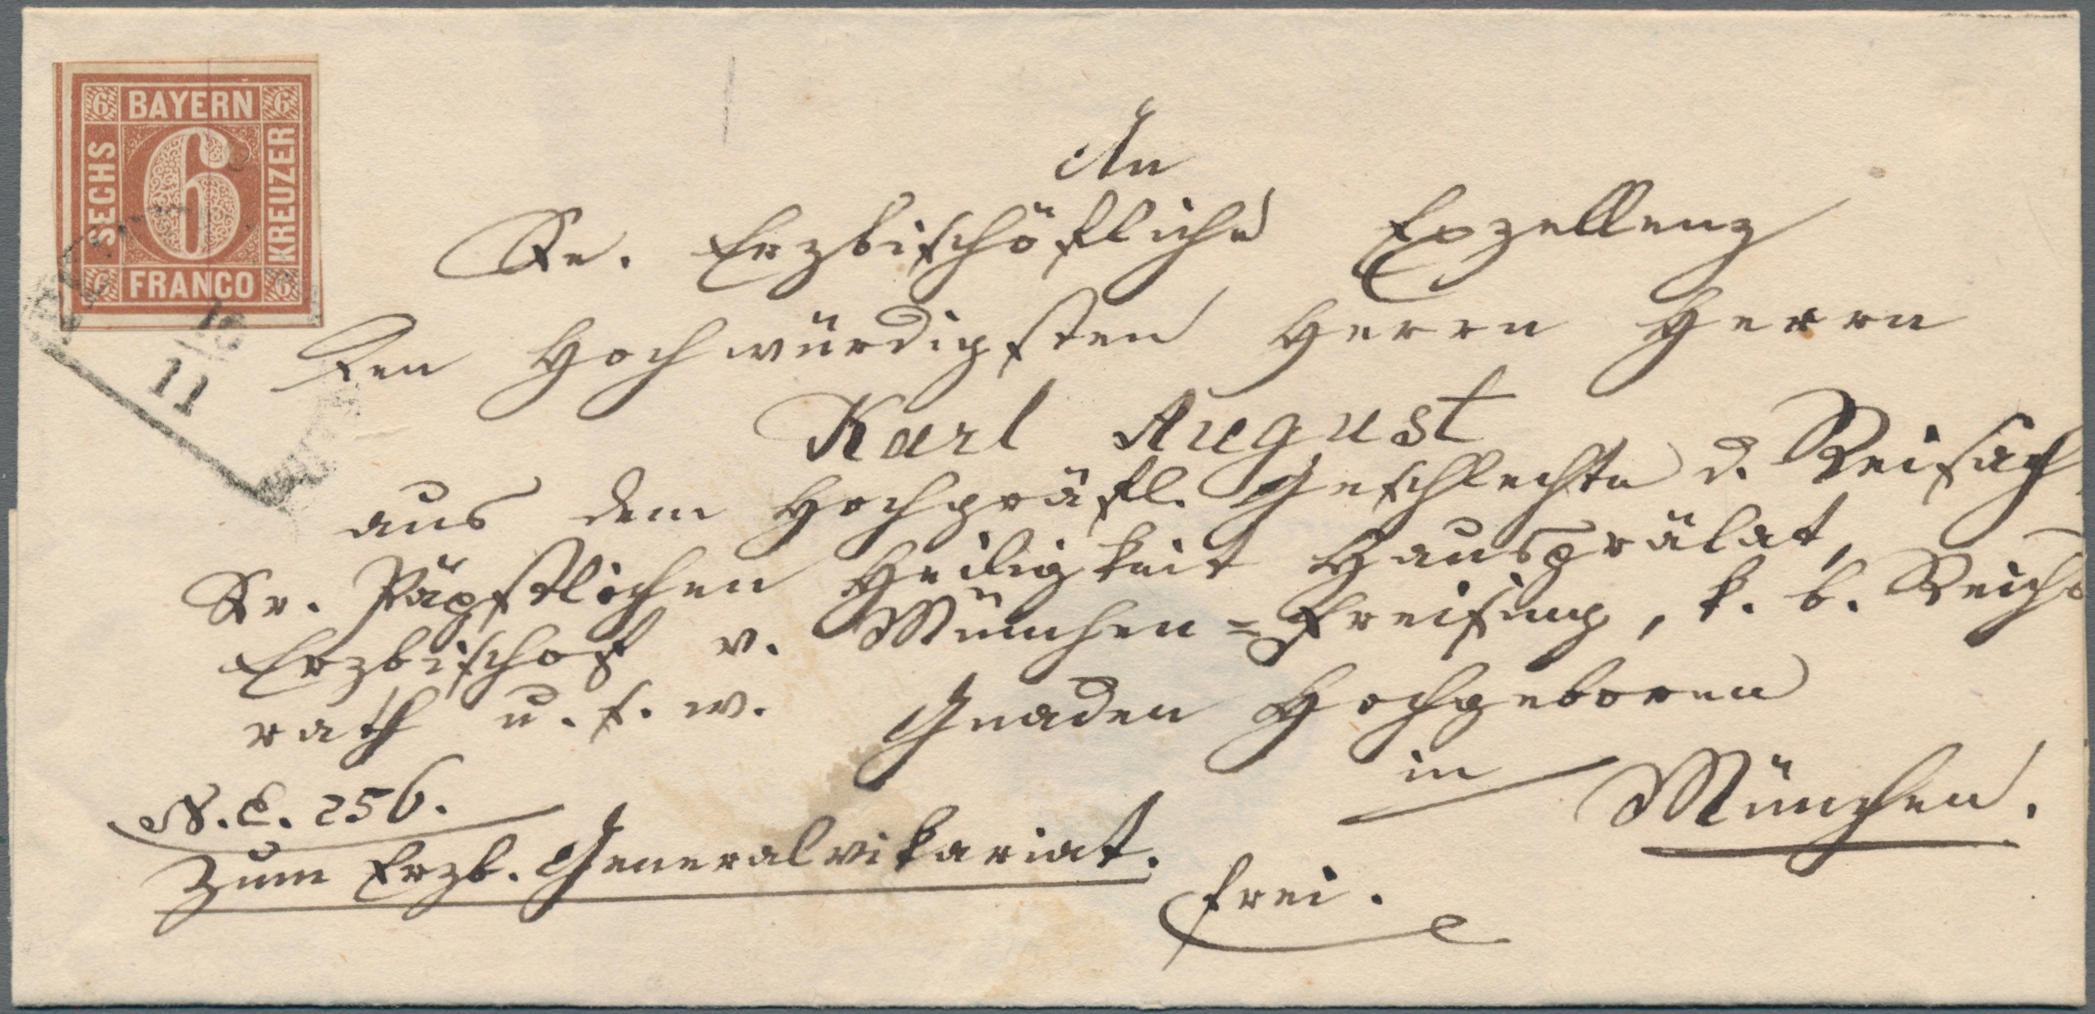 BAYERN
SECHS
KREUZER
FRANCO
6
6
6
6
6
10
11
An
Se. Erzbischöfliche Exzellenz
Den Hochwürdigsten Herrn Herrn
Karl August
aus dem Hochgräfl. Geschlechte v. Reisach
Sr. Päpstlichen Heiligkeit Hausprälat,
Erzbischof v. München=Freising, k. b. Reichs
rath u. s. w. Gnaden Hochgeboren
in München.
N. E. 256.
Zum Erzb. Generalvikariat.
frei.